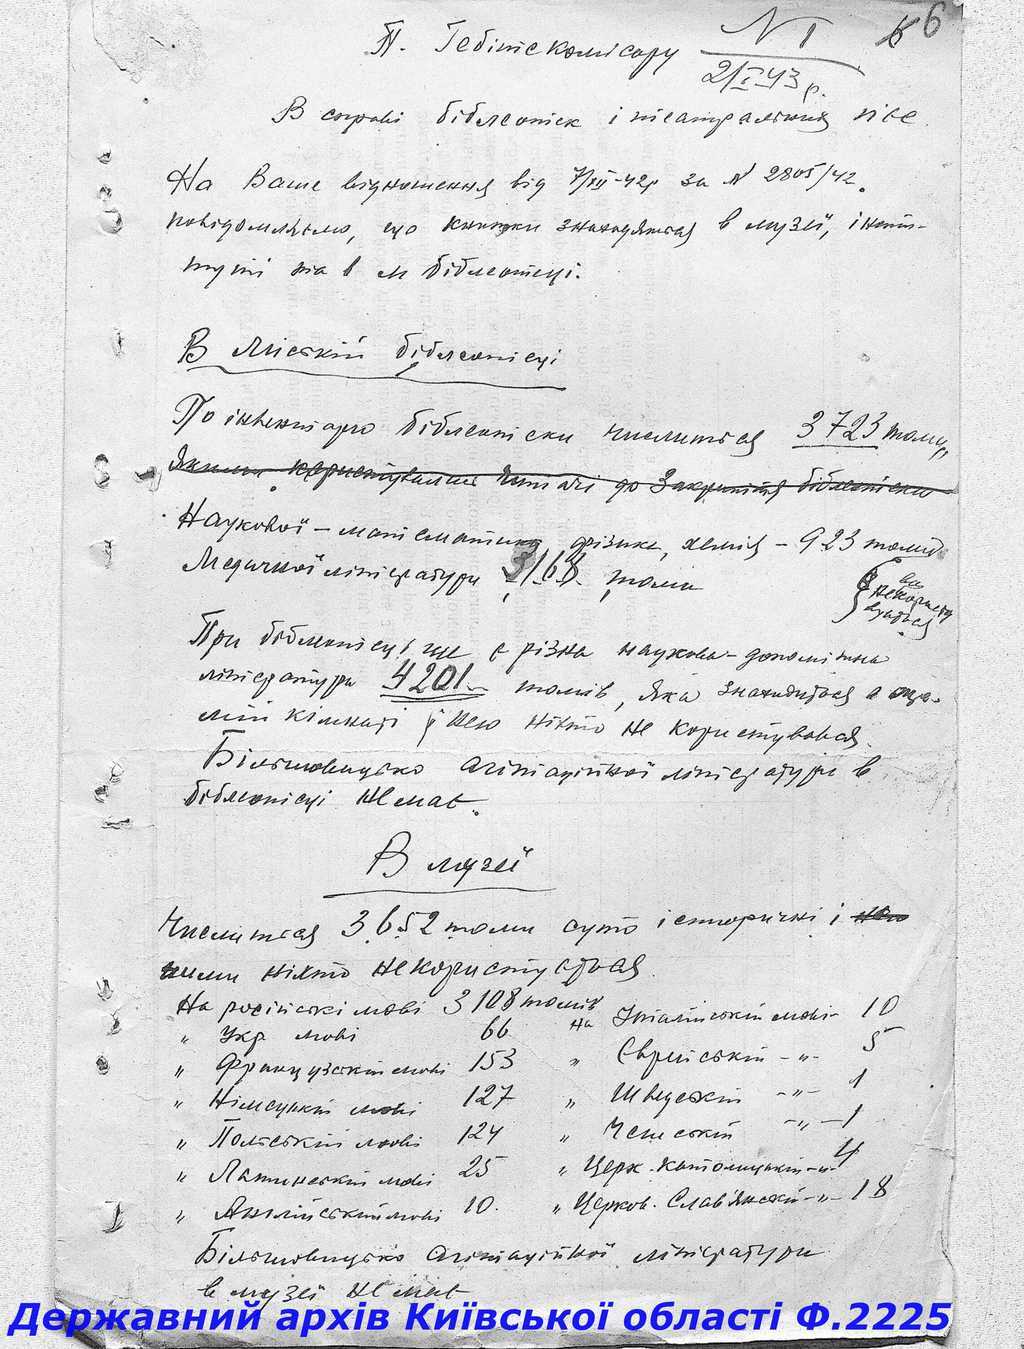 6
П. Гебітскомісару N 1
2/I-43 р.
В справі бібліотек і театральних п'єс
На Ваше відношення від 7/XII-42 р за N 2805/42.
повідомляємо, що книжки знаходяться в музеї, інсти-
туті та в м бібліотеці.
В Міській бібліотеці
По інвентарю бібліотеки числиться 3723 томи,
якими користувались читачі до закриття бібліотеки
Наукової – математика, фізика, хемія – 923 томи
Медичної літератури 3168 томи
не користу
ються
При бібліотеці ще є різна науково-допоміжна
література 4201 томів, яка знаходиться в окре-
мій кімнаті і нею ніхто не користувався.
Більшовицько агітаційної літератури в
бібліотеці немає.
В музеї
Числиться 3652 томи суто історичні і
ними ніхто не користується.
На російські мові 3108 томів
на Італійській мові - 10
" Укр мові 66
" Єврейській - " - 5
" Французській мові 153
" Шведській - " - 1
" Німецькій мові 127
" Чешській - " - 1
" Польській мові 124
" Церк. католицькій - " - 4
" Латинській мові 25
" Церков. Слав'янській - " - 18
" Англійській мові 10.
Більшовицько агітаційної літератури
в музеї немає
Державний архів Київської області Ф.2225